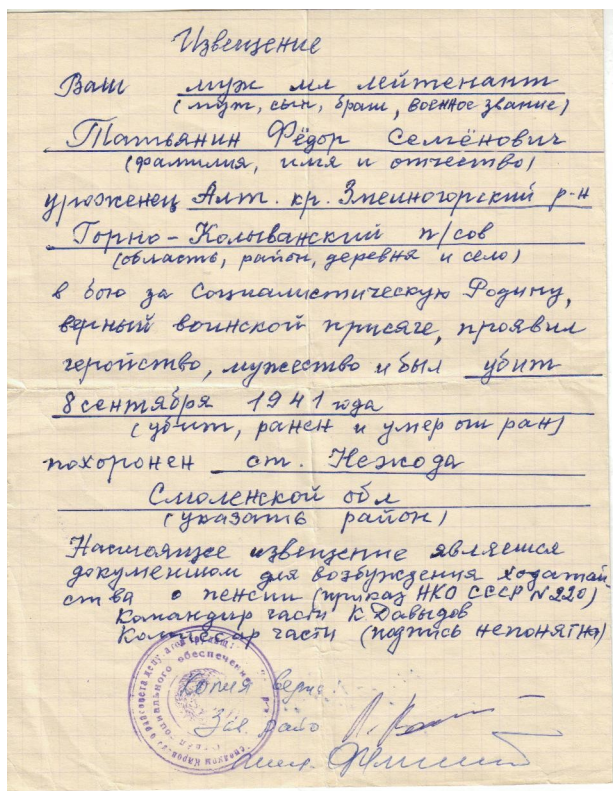 Извещение
Ваш муж мл лейтенант
(муж, сын, брат, военное звание)
Татьянин Фёдор Семёнович
(фамилия, имя и отчество)
уроженец Алт. кр. Змеиногорский р-н
Горно-Колыванский п/сов
(область, район, деревня и село)
в бою за Социалистическую Родину,
верный воинской присяге, проявил
геройство, мужество и был убит
8 сентября 1941 года
(убит, ранен и умер от ран)
похоронен ст. Нежода
Смоленской обл
(указать район)
Настоящее извещение является
документом для возбуждения ходатай-
ства о пенсии (приказ НКО СССР № 220)
Командир части К. Давыдов
Комиссар части (подпись непонятна)
Копия верна:
социального обеспечения